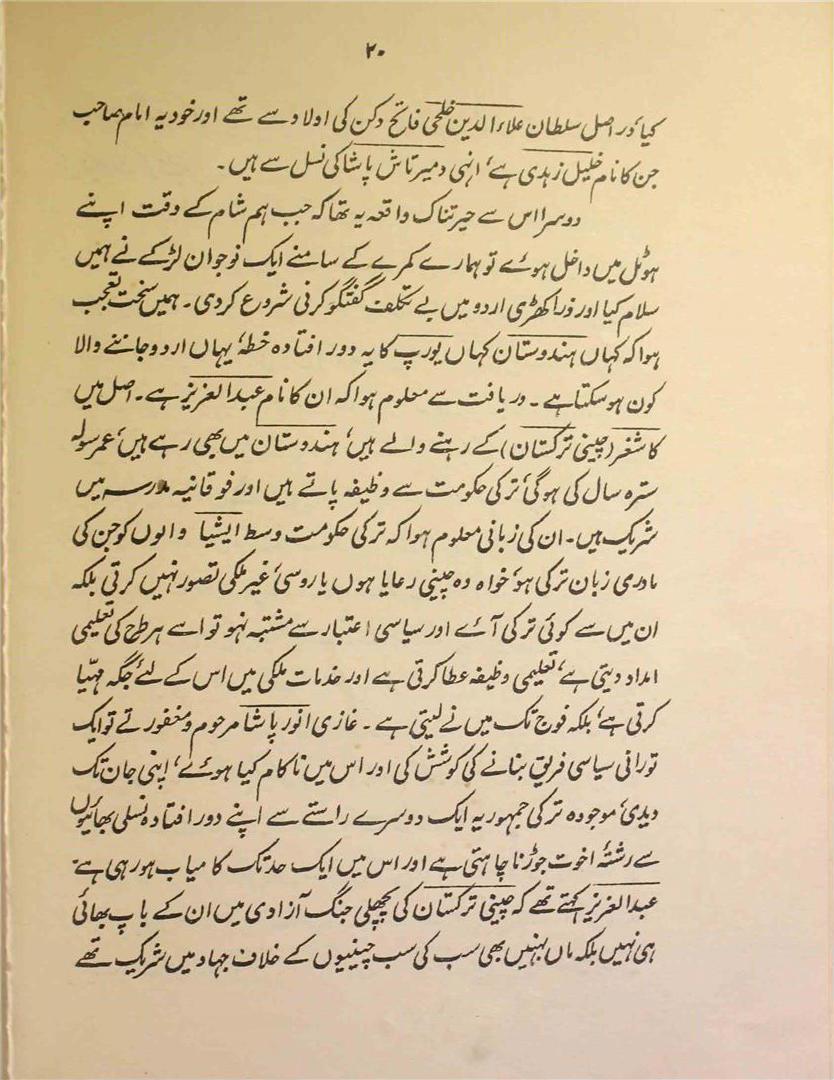 ۲۰
کیا، در اصل سلطان علاء الدین خلجی فاتح دکن کی اولاد سے تھے اور خود یہ امام صاحب
جن کا نام خلیل زہدی ہے، انہی دمیرتاش پاشا کی نسل سے ہیں۔
دوسرا اس سے حیرتناک واقعہ یہ تھا کہ جب ہم شام کے وقت اپنے
ہوٹل میں داخل ہوئے تو ہمارے کمرے کے سامنے ایک نوجوان لڑکے نے ہمیں
سلام کیا اور ذرا کھڑی اردو میں بے تکلف گفتگو کرنی شروع کر دی۔ ہمیں سخت تعجب
ہوا کہ کہاں ہندوستان کہاں یورپ کا یہ دور افتادہ خطہ، یہاں اردو جاننے والا
کون ہو سکتا ہے۔ دریافت سے معلوم ہوا کہ ان کا نام عبدالعزیز ہے۔ اصل میں
کاشغر (چینی ترکستان) کے رہنے والے ہیں، ہندوستان میں بھی رہے ہیں، عمر سولہ
سترہ سال کی ہوگی، ترکی حکومت سے وظیفہ پاتے ہیں اور فوقانیہ مدرسہ میں
شریک ہیں۔ ان کی زبانی معلوم ہوا کہ ترکی حکومت وسط ایشیا والوں کو جن کی
مادری زبان ترکی ہو، خواہ وہ چینی رعایا ہوں یا روسی، غیر ملکی تصور نہیں کرتی بلکہ
ان میں سے کوئی ترکی آئے اور سیاسی اعتبار سے مشتبہ نہو تو اسے ہر طرح کی تعلیمی
امداد دیتی ہے، تعلیمی وظیفہ عطا کرتی ہے اور خدمات ملکی میں اس کے لئے جگہ مہیّا
کرتی ہے، بلکہ فوج تک میں لے لیتی ہے۔ غازی انور پاشا مرحوم و مغفور نے تو ایک
تورانی سیاسی فریق بنانے کی کوشش کی اور اس میں ناکام کیا ہوئے، اپنی جان تک
دیدی، موجودہ ترکی جمہوریہ ایک دوسرے راستے سے اپنے دور افتادہ نسلی بھائیوں
سے رشتۂ اخوت جوڑنا چاہتی ہے اور اس میں ایک حد تک کامیاب ہو رہی ہے۔
عبدالعزیز کہتے تھے کہ چینی ترکستان کی پچھلی جنگ آزادی میں ان کے باپ بھائی
ہی نہیں بلکہ ماں بہنیں بھی سب کی سب چینیوں کے خلاف جہاد میں شریک تھے